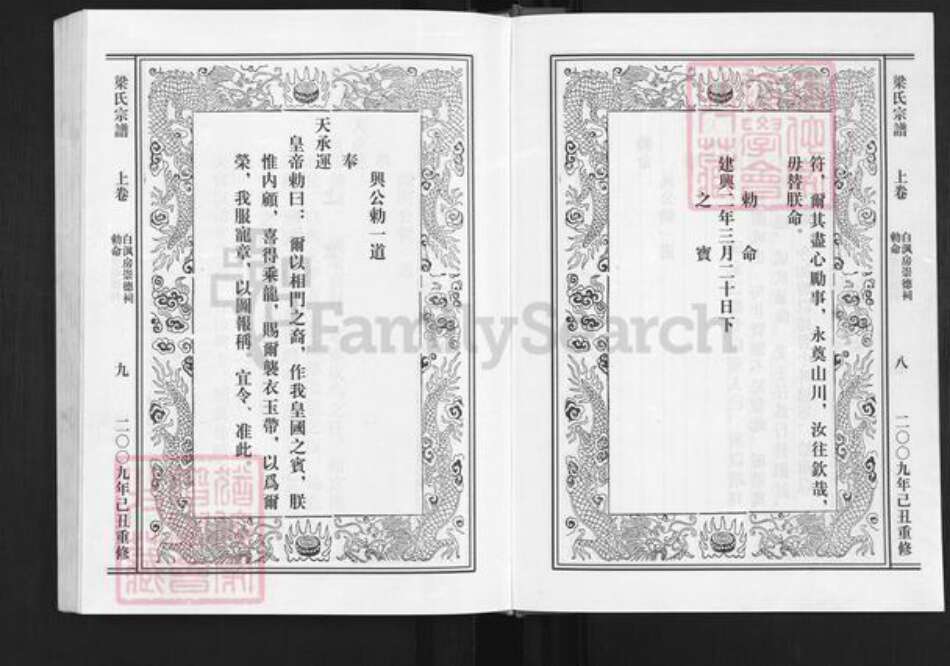 梁氏宗譜
上卷
白渢房崇德祠
勅命
八
二〇〇九年己丑重修
符，爾其盡心勵事，永奠山川，汝往欽哉，
毋替朕命。
勅命
建興二年三月二十日下
之寶
興公勅一道
奉
天承運
皇帝勅曰：爾以相門之裔，作我皇國之賓，朕
惟内顧，喜得乘龍，賜爾襲衣玉帶，以爲爾
榮，我服寵章，以圖報稱，宜令、准此。
梁氏宗譜
上卷
白渢房崇德祠
勅命
九
二〇〇九年己丑重修
FamilySearch